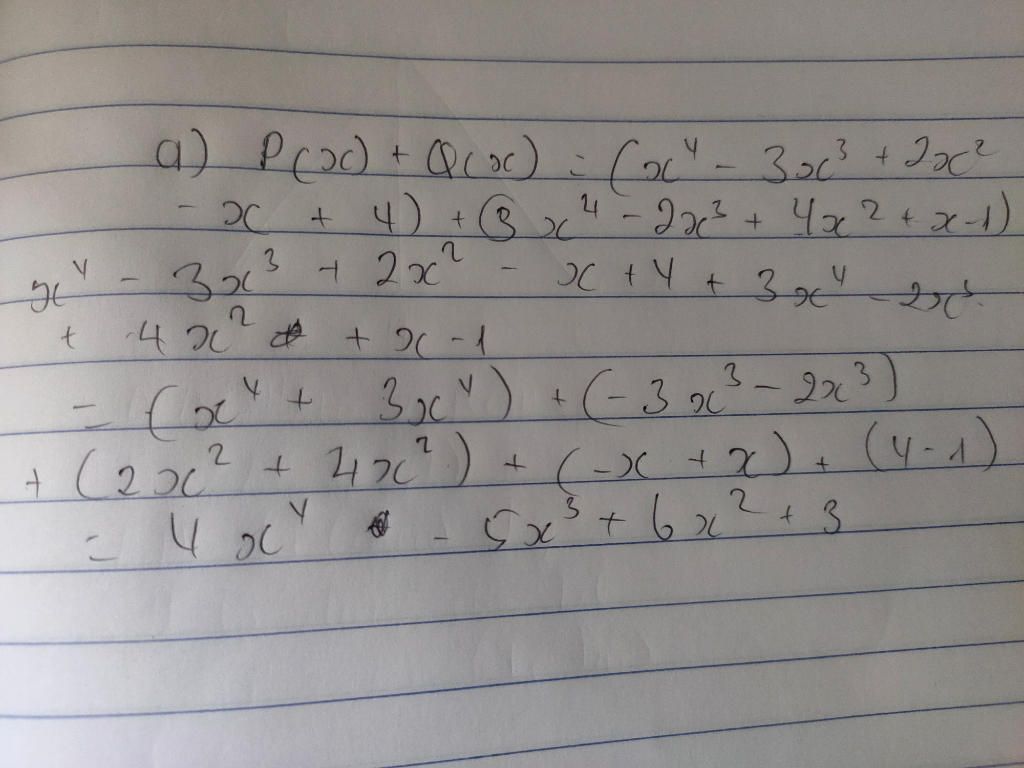 a) P(x) + Q(x) = (x⁴ - 3x³ + 2x²
- x + 4) + (3x⁴ - 2x³ + 4x² + x - 1)
x⁴ - 3x³ + 2x² - x + 4 + 3x⁴ - 2x³
+ 4x² + x - 1
= (x⁴ + 3x⁴) + (-3x³ - 2x³)
+ (2x² + 4x²) + (-x + x) + (4 - 1)
= 4x⁴ - 5x³ + 6x² + 3